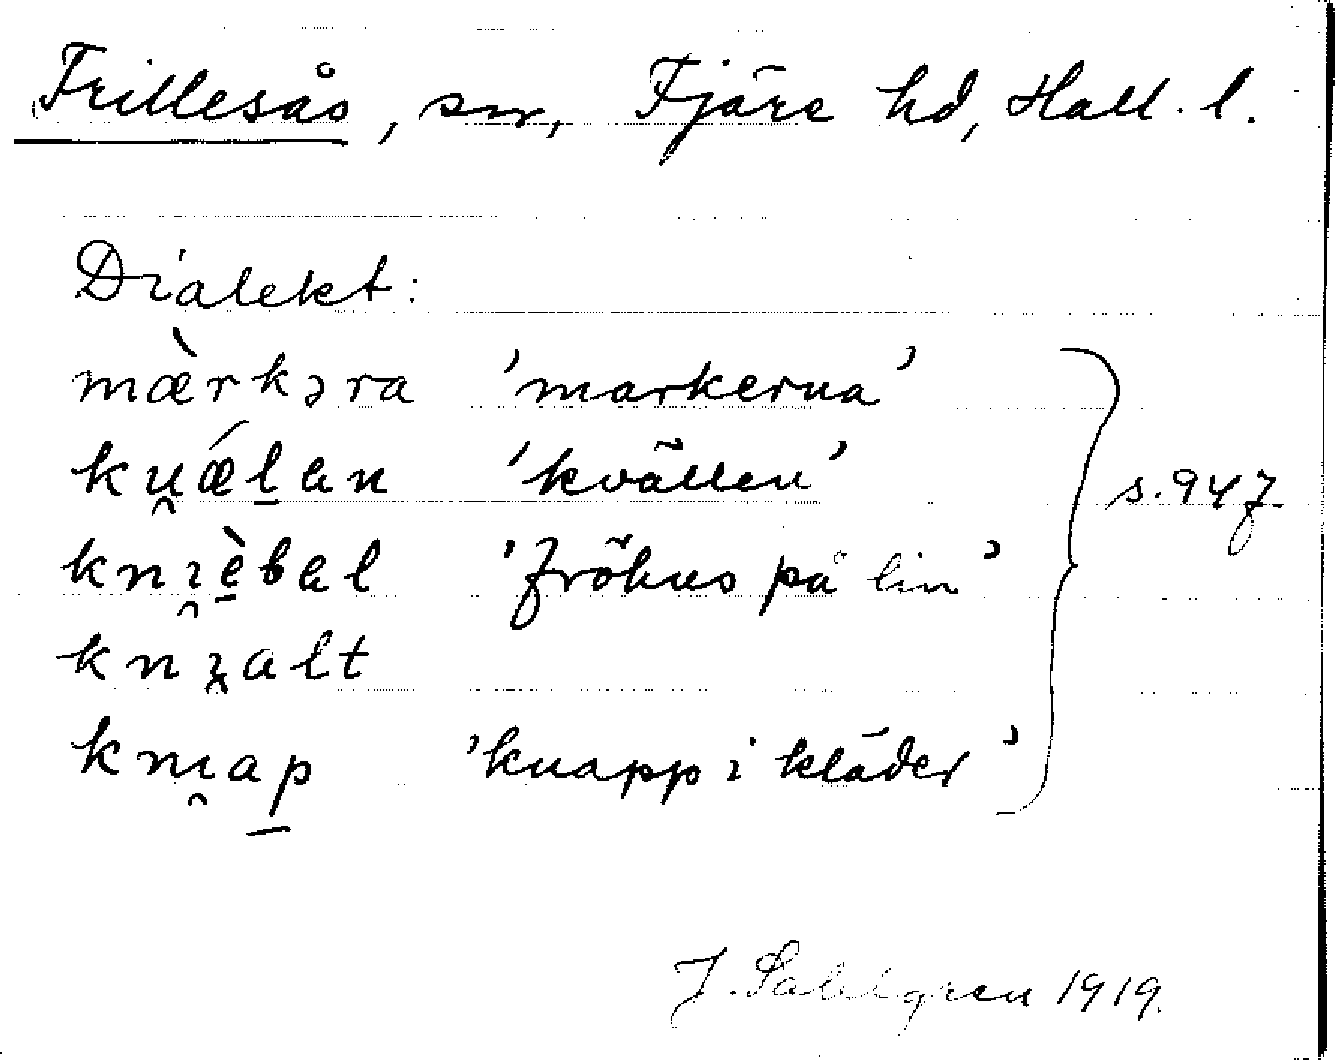 Frillesås, sn, Fjäre hd, Hall. l.
Dialekt:
mæ̀rkəra 'markerna'
ku̯ǽl̠an 'kvällen'
knı̯è̠bal 'fröhus på lin' s. 94 f.
knı̯alt
knı̯ap̠ 'knapp i kläder'
J. Sahlgren 1919.